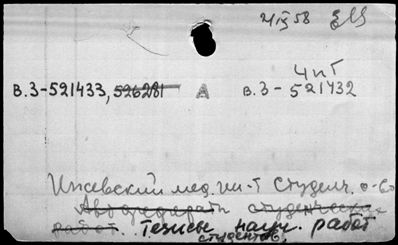 21/IX 58
ЧиТ
В.3-521433, 526281 А В.3-521432
Ижевский мед. ин-т Студенч. о-во
Авторефераты студенческих
работ. Тезисы научн. работ
студентов,